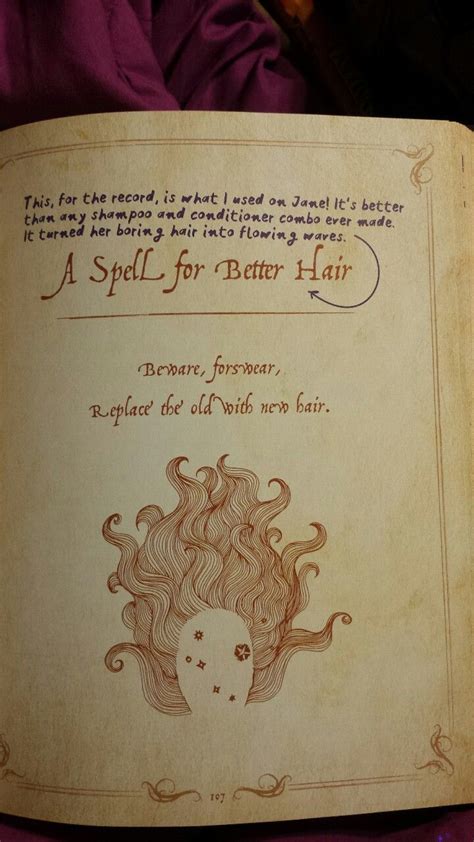 This, for the record, is what I used on Jane! It's better
than any shampoo and conditioner combo ever made.
It turned her boring hair into flowing waves.
A Spell for Better Hair
Beware, forswear,
Replace the old with new hair.
107